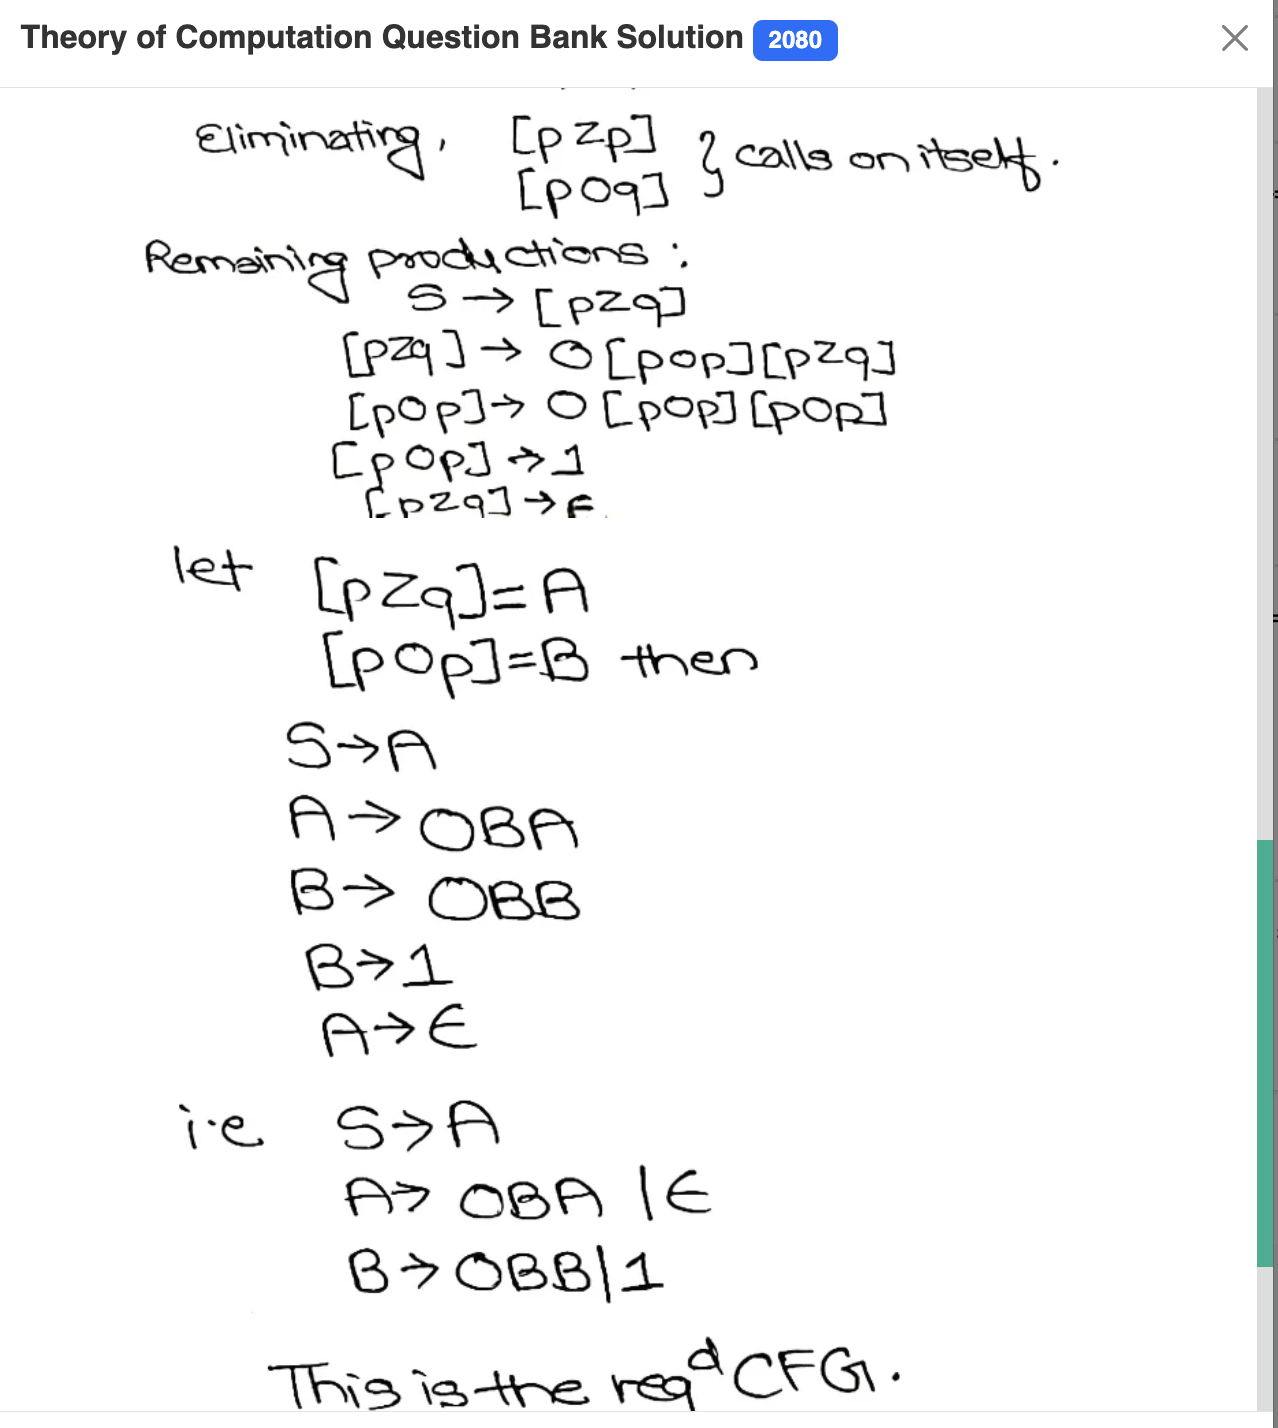 Theory of Computation Question Bank Solution 2080
Eliminating, [pzp]
[p0q] } calls on itself.
Remaining productions :
S → [pzq]
[pzq] → 0 [p0p][pzq]
[p0p] → 0 [p0p] [p0p]
[p0p] → 1
[pzq] → ϵ
let [pzq] = A
[p0p] = B then
S → A
A → 0BA
B → 0BB
B → 1
A → ϵ
i.e S → A
A → 0BA | ϵ
B → 0BB | 1
This is the reqᵈ CFG.